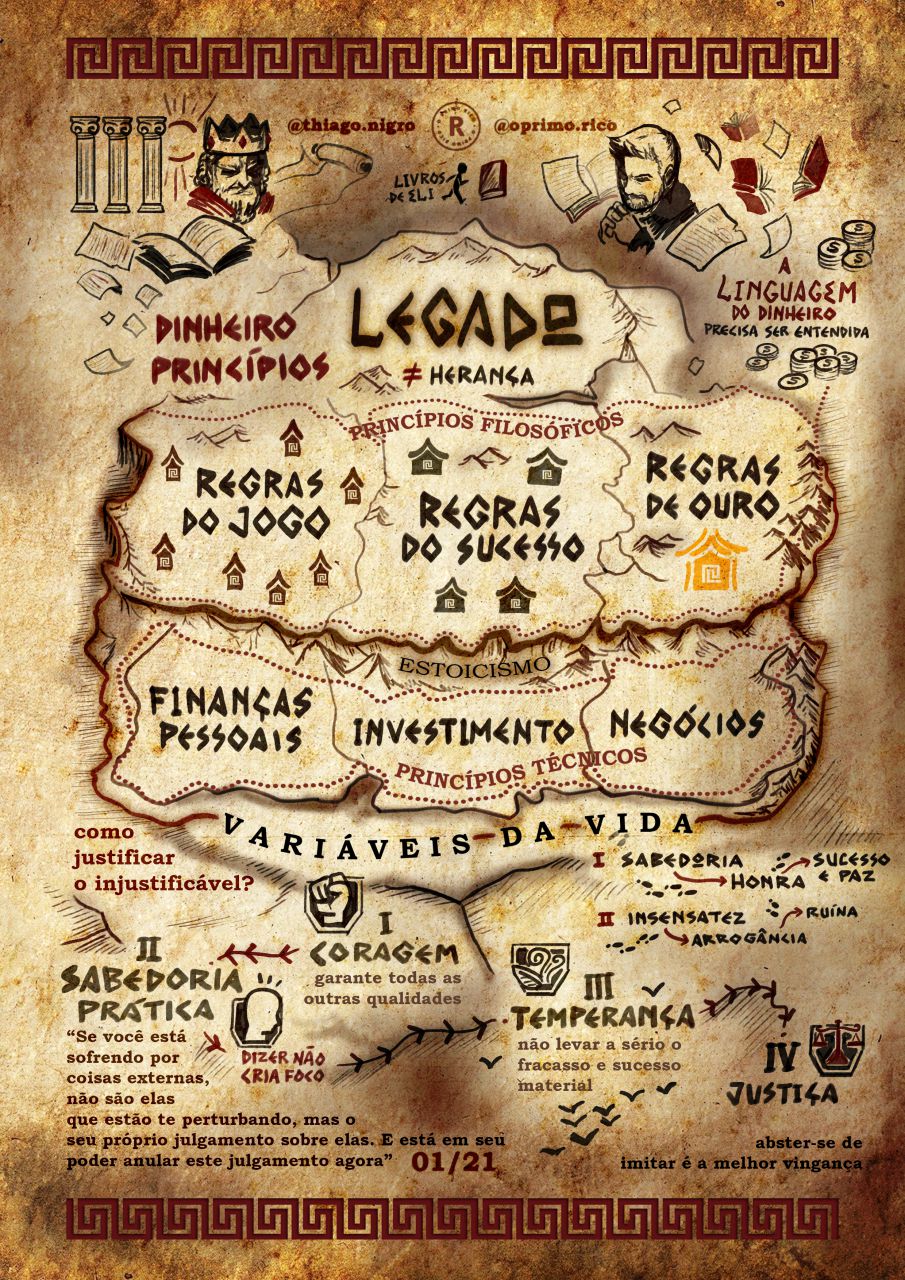 @thiago.nigro
R
@oprimo.rico
LIVROS
DE ELI
A
LINGUAGEM
DO DINHEIRO
PRECISA SER ENTENDIDA
DINHEIRO
PRINCÍPIOS
LEGADO
≠ HERANÇA
PRINCÍPIOS FILOSÓFICOS
REGRAS
DO JOGO
REGRAS
DO SUCESSO
REGRAS
DE OURO
ESTOICISMO
FINANÇAS
PESSOAIS
INVESTIMENTO
NEGÓCIOS
PRINCÍPIOS TÉCNICOS
VARIÁVEIS DA VIDA
como
justificar
o injustificável?
I SABEDORIA
HONRA
SUCESSO
E PAZ
II INSENSATEZ
ARROGÂNCIA
RUÍNA
I
CORAGEM
garante todas as
outras qualidades
II
SABEDORIA
PRÁTICA
DIZER NÃO
CRIA FOCO
“Se você está
sofrendo por
coisas externas,
não são elas
que estão te perturbando, mas o
seu próprio julgamento sobre elas. E está em seu
poder anular este julgamento agora”
01/21
III
TEMPERANÇA
não levar a sério o
fracasso e sucesso
material
IV
JUSTIÇA
abster-se de
imitar é a melhor vingança